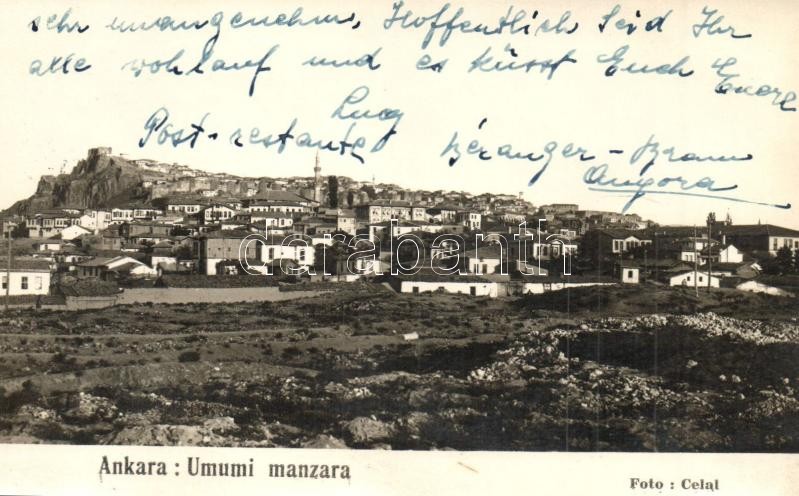 sehr unangenehm, Hoffentlich Seid Ihr
alle wohlauf und es küsst Euch Euere
Lucy
Post-restante Béranger-Bram
Angora
Darabanth
Ankara : Umumi manzara
Foto : Celâl